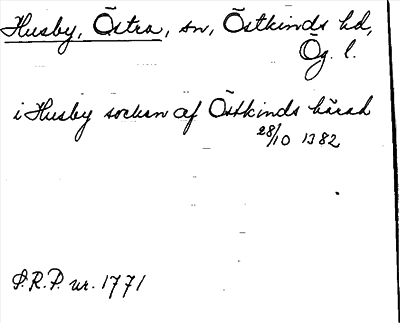 Husby, Östra, sn, Östkinds hd,
Ög. l.
i Husby socken af Östkinds härad
28/10 1382
S.R.P. nr. 1771